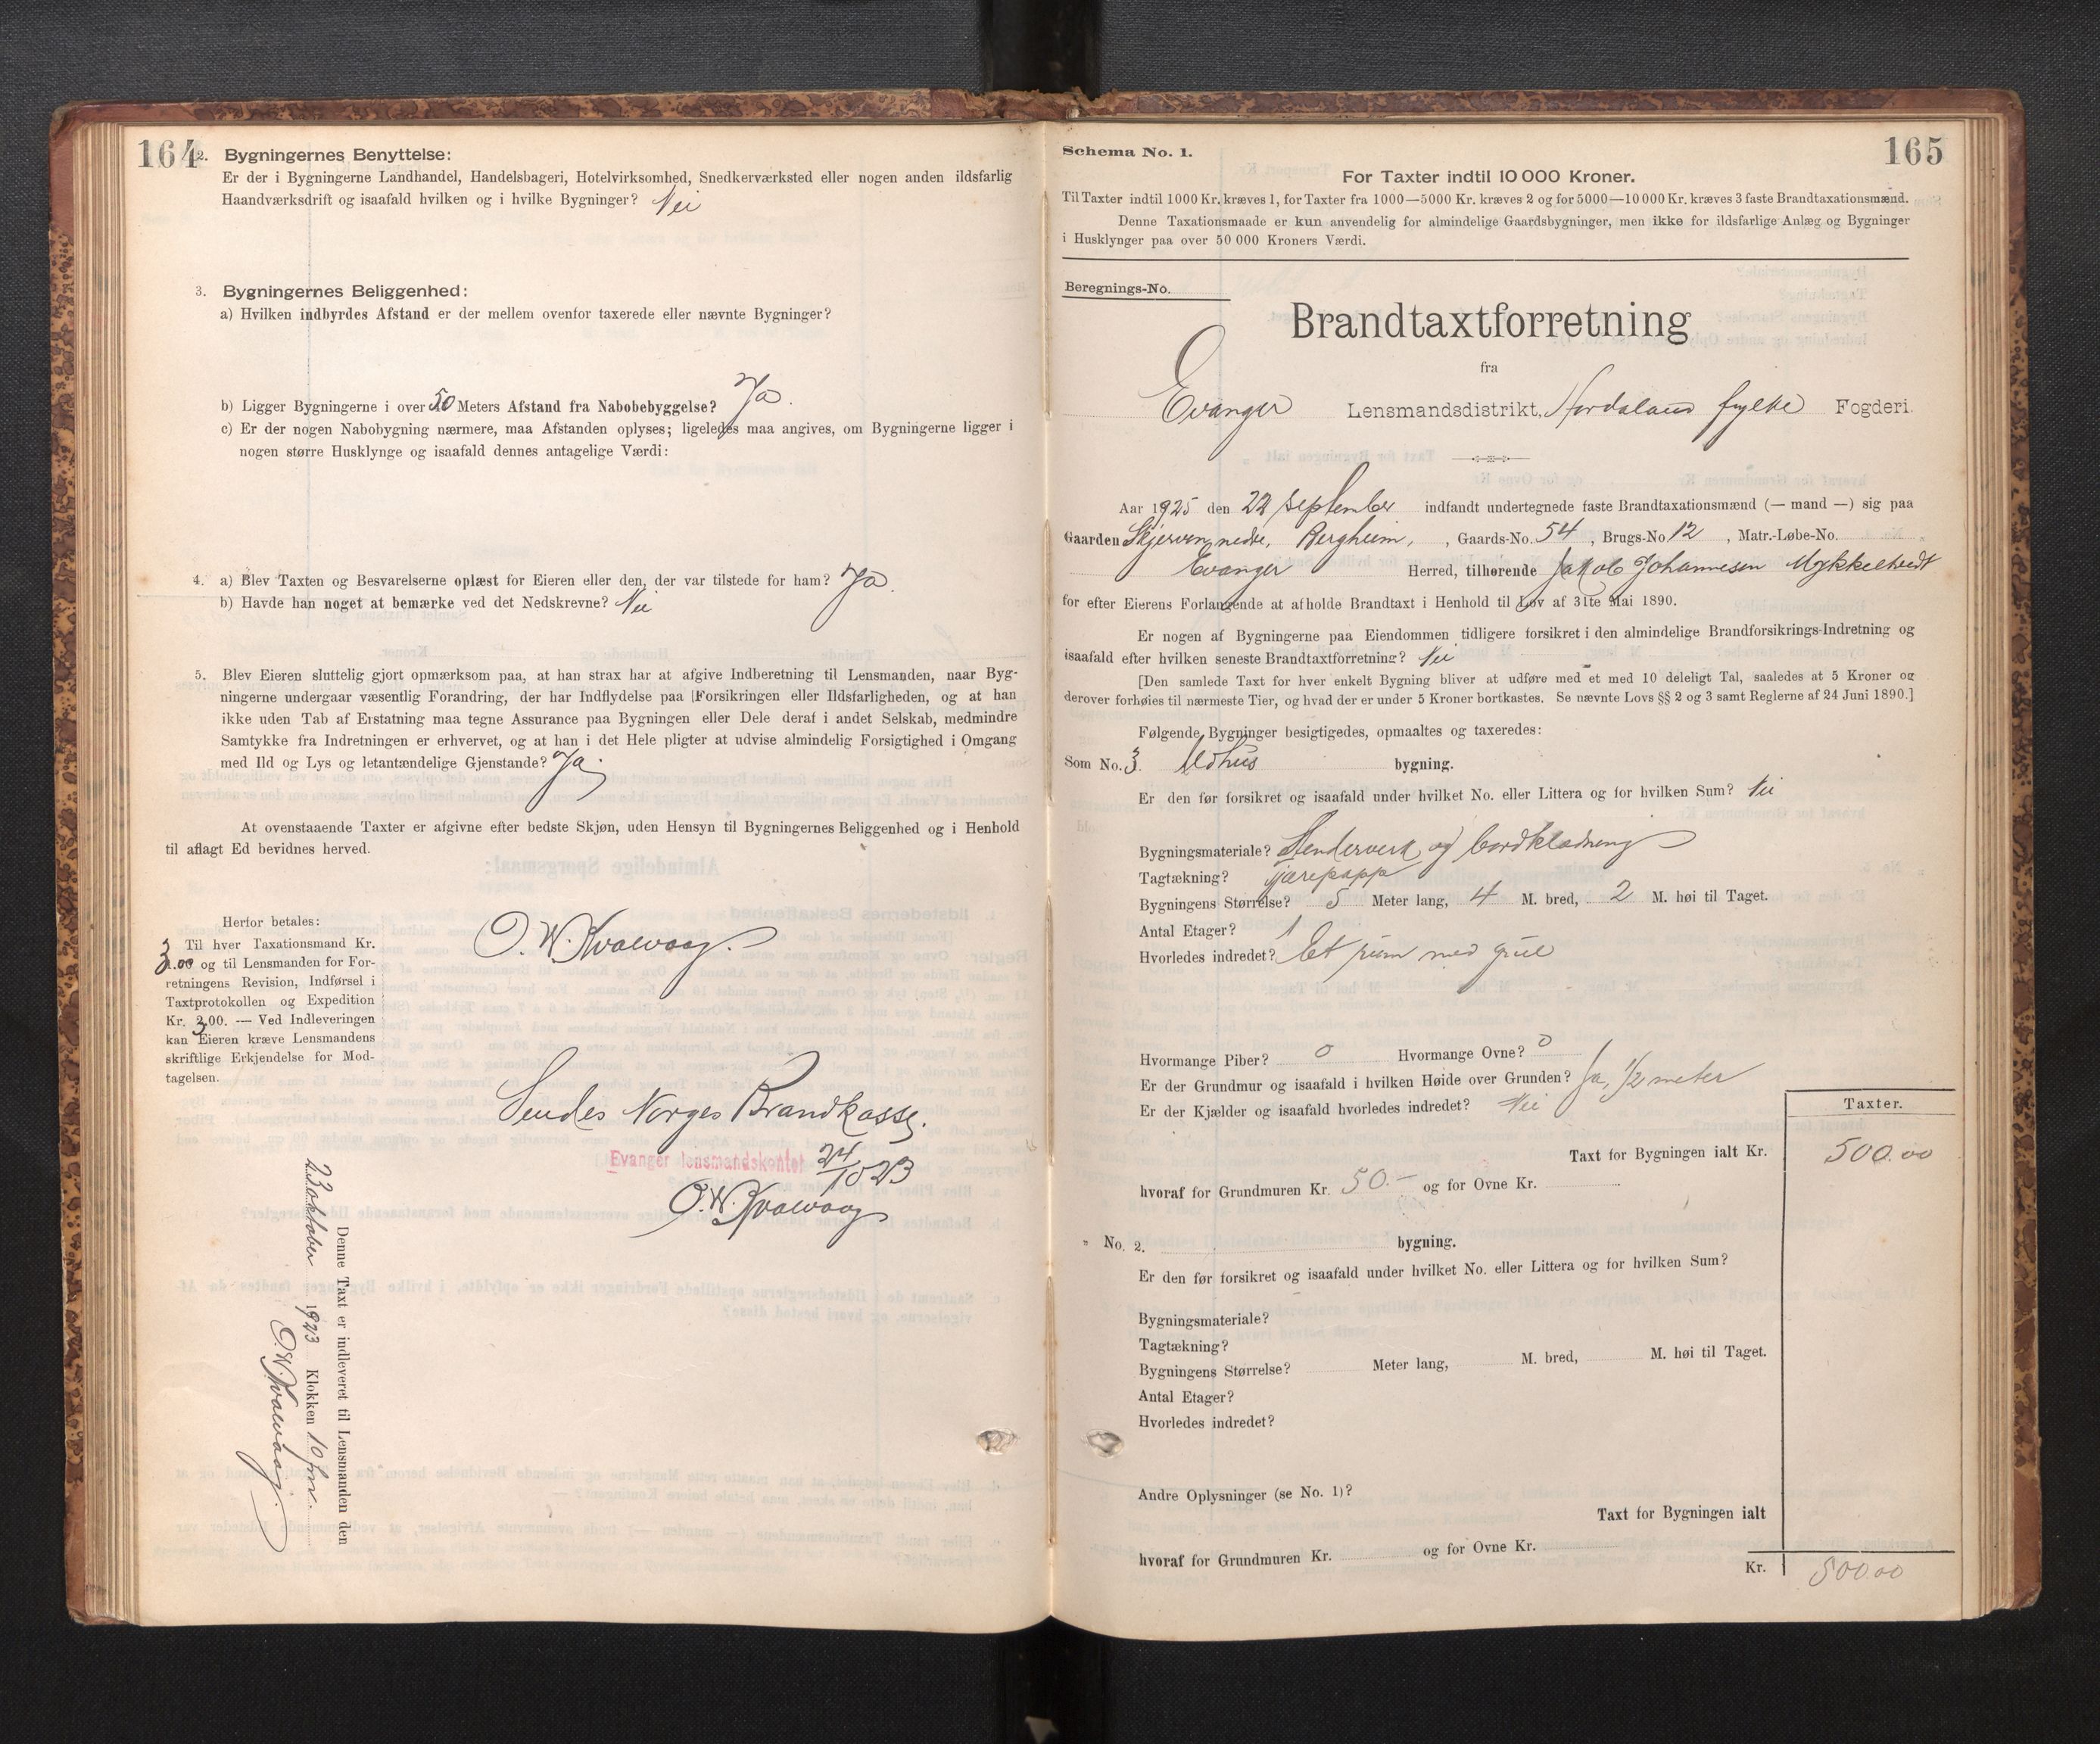 164
2. Bygningernes Benyttelse:
Er der i Bygningerne Landhandel, Handelsbageri, Hotelvirksomhed, Snedkerværksted eller nogen anden ildsfarlig
Haandværksdrift og isaafald hvilken og i hvilke Bygninger? Nei
3. Bygningernes Beliggenhed:
a) Hvilken indbyrdes Afstand er der mellem ovenfor taxerede eller nævnte Bygninger?
b) Ligger Bygningerne i over 50 Meters Afstand fra Nabobebyggelse? Ja.
c) Er der nogen Nabobygning nærmere, maa Afstanden oplyses; ligeledes maa angives, om Bygningerne ligger i
nogen større Husklynge og isaafald dennes antagelige Værdi:
4. a) Blev Taxten og Besvarelserne oplæst for Eieren eller den, der var tilstede for ham? Ja.
b) Havde han noget at bemærke ved det Nedskrevne? Nei
5. Blev Eieren sluttelig gjort opmærksom paa, at han strax har at afgive Indberetning til Lensmanden, naar Byg-
ningerne undergaar væsentlig Forandring, der har Indflydelse paa Forsikringen eller Ildsfarligheden, og at han
ikke uden Tab af Erstatning maa tegne Assurance paa Bygningen eller Dele deraf i andet Selskab, medmindre
Samtykke fra Indretningen er erhvervet, og at han i det Hele pligter at udvise almindelig Forsigtighed i Omgang
med Ild og Lys og letantændelige Gjenstande? Ja.
At ovenstaaende Taxter er afgivne efter bedste Skjøn, uden Hensyn til Bygningernes Beliggenhed og i Henhold
til aflagt Ed bevidnes herved.
O. W. Kvalvaag.
Herfor betales:
Til hver Taxationsmand Kr.
3.00 og til Lensmanden for For-
retningens Revision, Indførsel i
Taxtprotokollen og Expedition
Kr. 3.00. — Ved Indleveringen
kan Eieren kræve Lensmandens
skriftlige Erkjendelse for Mod-
tagelsen.
Sendes Norges Brandkasse.
Evanger lensmandskontor 24/10 23
O. W. Kvalvaag
Denne Taxt er indleveret til Lensmanden den
23 oktober 1923 Klokken 10 fm.
O. W. Kvalvaag.
165
Schema No. 1.
For Taxter indtil 10 000 Kroner.
Til Taxter indtil 1000 Kr. kræves 1, for Taxter fra 1000—5000 Kr. kræves 2 og for 5000—10 000 Kr. kræves 3 faste Brandtaxationsmænd.
Denne Taxationsmaade er kun anvendelig for almindelige Gaardsbygninger, men ikke for ildsfarlige Anlæg og Bygninger
i Husklynger paa over 50 000 Kroners Værdi.
Beregnings-No.
Brandtaxtforretning
fra
Evanger Lensmandsdistrikt, Hordaland fylke Fogderi.
Aar 1925 den 22 september indfandt undertegnede faste Brandtaxationsmænd (— mand —) sig paa
Gaarden Skjerven nedre, Bergheim, , Gaards-No. 54 , Brugs-No 12 , Matr.-Løbe-No.
Evanger Herred, tilhørende Jakob Johannesen Mykkeltvedt
for efter Eierens Forlangende at afholde Brandtaxt i Henhold til Lov af 31te Mai 1890.
Er nogen af Bygningerne paa Eiendommen tidligere forsikret i den almindelige Brandforsikrings-Indretning og
isaafald efter hvilken seneste Brandtaxtforretning? Nei
[Den samlede Taxt for hver enkelt Bygning bliver at udføre med et med 10 deleligt Tal, saaledes at 5 Kroner og
derover forhøies til nærmeste Tier, og hvad der er under 5 Kroner bortkastes. Se nævnte Lovs §§ 2 og 3 samt Reglerne af 24 Juni 1890.]
Følgende Bygninger besigtigedes, opmaaltes og taxeredes:
Som No. 3. Udhus bygning.
Er den før forsikret og isaafald under hvilket No. eller Littera og for hvilken Sum? Nei
Bygningsmateriale? Stenderverk og bordklædning
Tagtækning? tjærepapp
Bygningens Størrelse? 5 Meter lang, 4 M. bred, 2 M. høi til Taget.
Antal Etager? 1
Hvorledes indredet? Et rum med
Hvormange Piber? 0 Hvormange Ovne? 0
Er der Grundmur og isaafald i hvilken Høide over Grunden? Ja, 1/2 meter
Er der Kjælder og isaafald hvorledes indredet? Nei
Taxter.
Taxt for Bygningen ialt Kr. 500.00
hvoraf for Grundmuren Kr. 50.- og for Ovne Kr.
" No. 2. bygning.
Er den før forsikret og isaafald under hvilket No. eller Littera og for hvilken Sum?
Bygningsmateriale?
Tagtækning?
Bygningens Størrelse? Meter lang, M. bred, M. høi til Taget.
Antal Etager?
Hvorledes indredet?
Andre Oplysninger (se No. 1)?
Taxt for Bygningen ialt
hvoraf for Grundmuren Kr. og for Ovne Kr.
Kr. 500.00